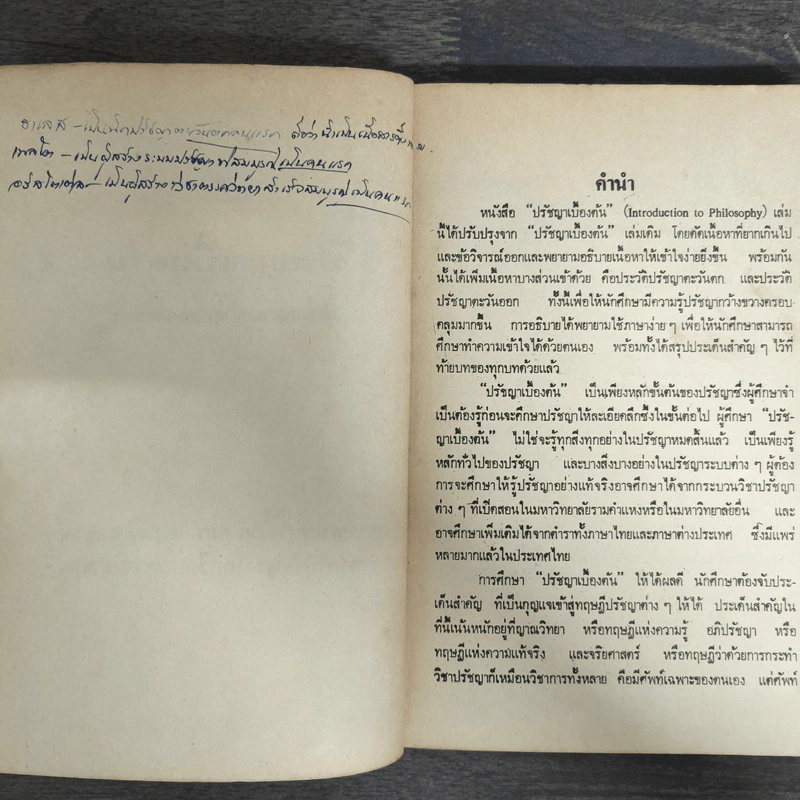 ธาเลส - เป็นนักปรัชญาตะวันตกคนแรก ถือว่าน้ำเป็นเนื้อสาร
เพลโต - เป็นผู้สร้างระบบปรัชญาที่สมบูรณ์เป็นคนแรก
อริสโตเติล - เป็นผู้สร้างวิชาตรรกวิทยาสำเร็จสมบูรณ์เป็นคนแรก
คำนำ
หนังสือ “ปรัชญาเบื้องต้น” (Introduction to Philosophy) เล่ม
นี้ได้ปรับปรุงจาก “ปรัชญาเบื้องต้น” เล่มเดิม โดยตัดเนื้อหาที่ยากเกินไป
และข้อวิจารณ์ออกและพยายามอธิบายเนื้อหาให้เข้าใจง่ายยิ่งขึ้น พร้อมกัน
นั้นได้เพิ่มเนื้อหาบางส่วนเข้าด้วย คือประวัติปรัชญาตะวันตก และประวัติ
ปรัชญาตะวันออก ทั้งนี้เพื่อให้นักศึกษามีความรู้ปรัชญากว้างขวางครอบ-
คลุมมากขึ้น การอธิบายได้พยายามใช้ภาษาง่าย ๆ เพื่อให้นักศึกษาสามารถ
ศึกษาทำความเข้าใจได้ด้วยตนเอง พร้อมทั้งได้สรุปประเด็นสำคัญ ๆ ไว้ที่
ท้ายบทของทุกบทด้วยแล้ว
“ปรัชญาเบื้องต้น” เป็นเพียงหลักขั้นต้นของปรัชญาซึ่งผู้ศึกษาจำ
เป็นต้องรู้ก่อนจะศึกษาปรัชญาให้ละเอียดลึกซึ้งในขั้นต่อไป ผู้ศึกษา “ปรัช-
ญาเบื้องต้น” ไม่ใช่จะรู้ทุกสิ่งทุกอย่างในปรัชญาหมดสิ้นแล้ว เป็นเพียงรู้
หลักทั่วไปของปรัชญา และบางสิ่งบางอย่างในปรัชญาระบบต่าง ๆ ผู้ต้อง
การจะศึกษาให้รู้ปรัชญาอย่างแท้จริงอาจศึกษาได้จากกระบวนวิชาปรัชญา
ต่าง ๆ ที่เปิดสอนในมหาวิทยาลัยรามคำแหงหรือในมหาวิทยาลัยอื่น และ
อาจศึกษาเพิ่มเติมได้จากตำราทั้งภาษาไทยและภาษาต่างประเทศ ซึ่งมีแพร่
หลายมากแล้วในประเทศไทย
การศึกษา “ปรัชญาเบื้องต้น” ให้ได้ผลดี นักศึกษาต้องจับประ-
เด็นสำคัญ ที่เป็นกุญแจเข้าสู่ทฤษฎีปรัชญาต่าง ๆ ให้ได้ ประเด็นสำคัญใน
ที่นี้เน้นหนักอยู่ที่ญาณวิทยา หรือทฤษฎีแห่งความรู้ อภิปรัชญา หรือ
ทฤษฎีแห่งความแท้จริง และจริยศาสตร์ หรือทฤษฎีว่าด้วยการกระทำ
วิชาปรัชญาก็เหมือนวิชาการทั้งหลาย คือมีศัพท์เฉพาะของตนเอง แต่ศัพท์